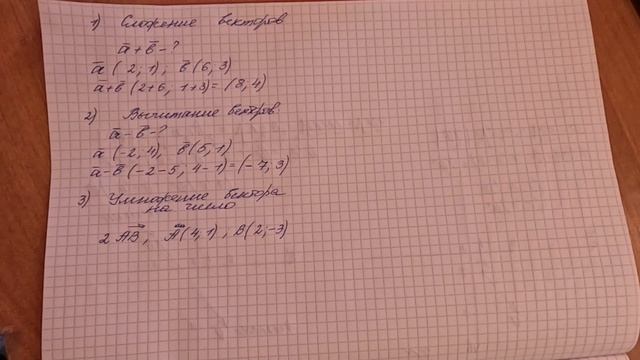 1) Сложение векторов
a̅ + b̅ - ?
a̅ (2; 1), b̅ (6, 3)
a̅+b̅ (2+6, 1+3) = (8, 4)
2) Вычитание векторов.
a̅ - b̅ - ?
a̅ (-2, 4), b̅ (5, 1)
a̅-b̅ (-2-5, 4-1) = (-7, 3)
3) Умножение вектора
на число
2 A̅B̅, A(4, 1), B(2; -3)